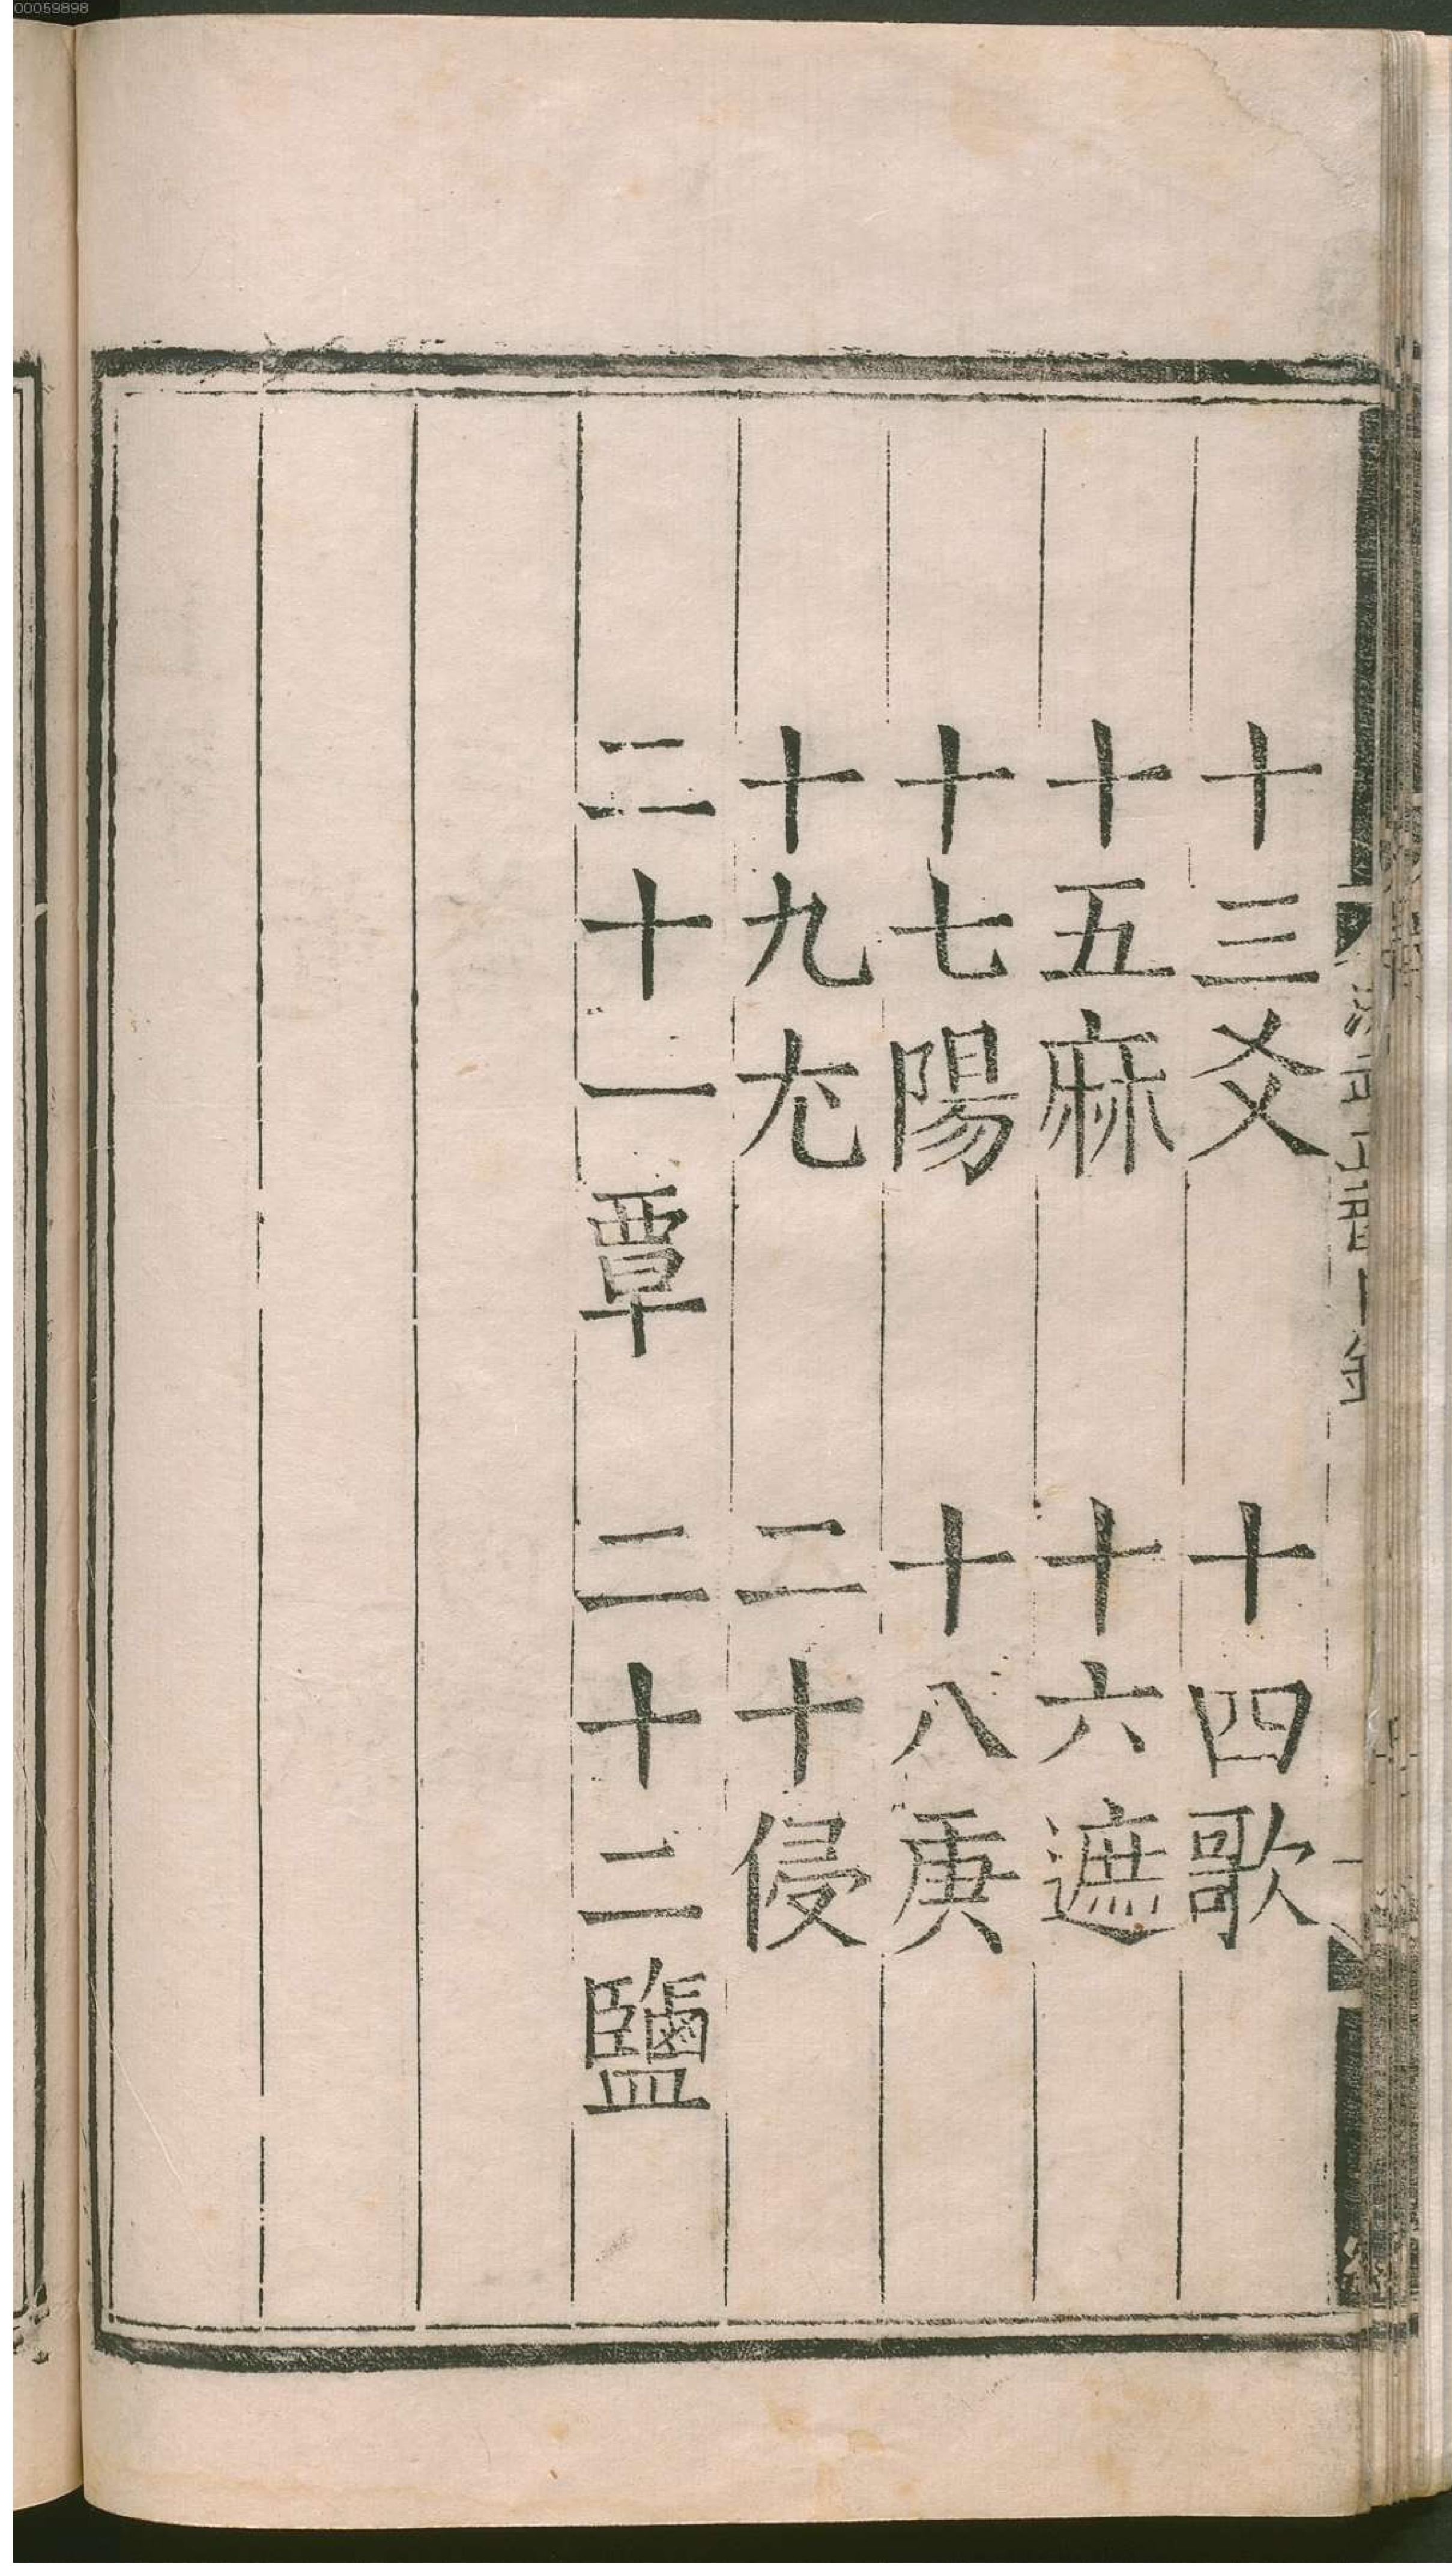 00059898
十三爻 十四歌
十五麻 十六遮
十七陽 十八庚
十九尤 二十侵
二十一覃 二十二鹽